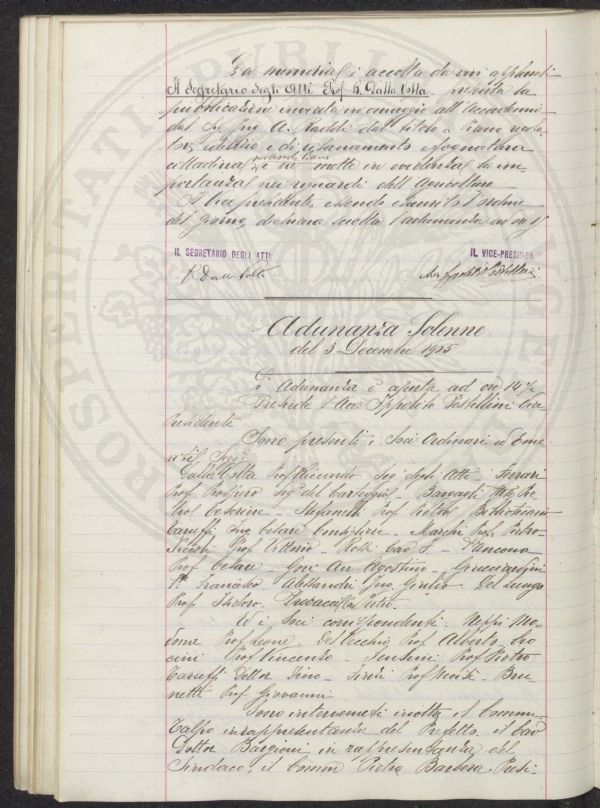 La memoria è accolta da vivi applausi
Il Segretario degli Atti Prof. R. Dalla Volta presenta la
pubblicazione inviata in omaggio all'Accademia
dal Ing A. Raddi dal titolo
edilizio e di risanamento e fognatura
cittadina e ne mette in evidenza la im
portanza nei riguardi dell'Agricoltura
Il Vice presidente, essendo esaurito l'ordine
del giorno, dichiara sciolta l'adunanza
IL SEGRETARIO DEGLI ATTI IL VICE-PRESIDEN
R Dalla Volta Avv Ippolito Pestellini
Adunanza Solenne
del 3 Decembre 1905
L'Adunanza è aperta ad ore 14 ½
Presiede l'Avv. Ippolito Pestellini Vice
Presidente
Sono presenti i Soci Ordinari ed Eme
riti Sigg:
Dalla Volta Prof Riccardo Seg degli Atti - Ferrari
Prof. Prospero Seg del Carteggio -
Prof. - Stefanelli Prof Pietro Bibliotecario
Caruffi Ing Cesare Consigliere - Marchi Prof. Pietro -
Niccoli Prof Vittorio - Rossi Cav - D'Ancona
Prof Cesare - Gori Avv Agostino - Guicciardini
Francesco - Alessandri Ing. Giulio - Del Lungo
Prof. Isidoro, Pietro.
Ed i Soci corrispondenti: Neppi Mo-
dona Prof Leone - Del Vecchio Prof Alberto,
Prof Vincenzo - Prof Pietro
Caruffi Dottor Dino - Prof - Bru
netti Prof Giovanni
Sono intervenuti inoltre il Comm
Talpo in rappresentanza del Prefetto, il Cav
Dottor Bargioni in rappresentanza del
Sindaco, il Comm Pietro Barbera Presi-